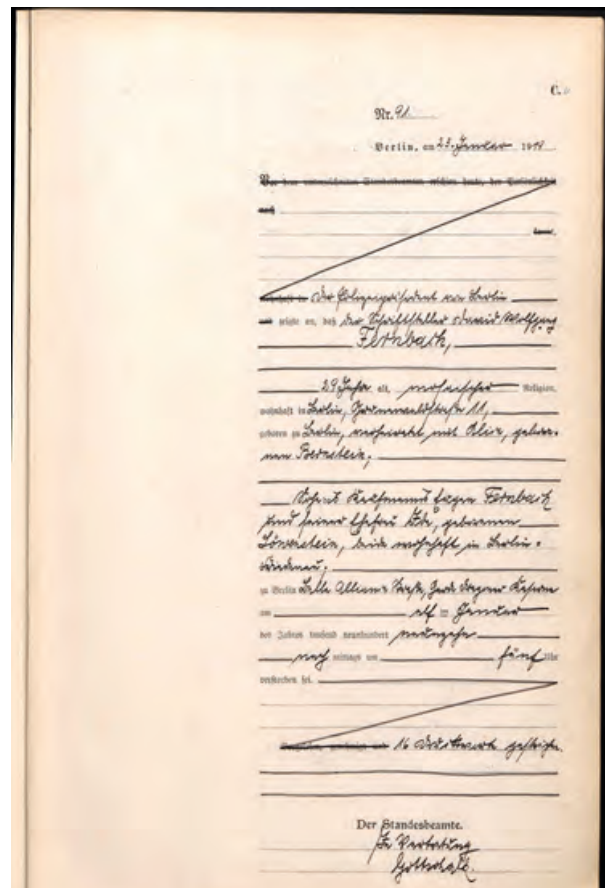 C.
Nr. 91.
Berlin, am 23. Januar 1919
Vor dem unterzeichneten Standesbeamten erschien heute, der Persönlichkeit
nach
kannt,
Der Polizeipräsident von Berlin
und zeigte an, daß der Schriftsteller David Wolfgang
Fernbach,
29 Jahre alt, mosaischer Religion,
wohnhaft in Berlin, Grunewaldstraße 11,
geboren zu Berlin, verheiratet mit Alice, gebore-
nen Bernstein,
Sohn des Kaufmanns Eugen Fernbach
und seiner Ehefrau Ida, geborenen
Löwenstein, beide wohnhaft in Berlin-
Friedenau,
zu Berlin Belle Alliance Straße, Garde Dragoner Kaserne
am elf ten Januar
des Jahres tausend neunhundert neunzehn
nach mittags um fünf Uhr
verstorben sei.
16 Druckworte gestrichen.
Der Standesbeamte.
In Vertretung
Gottschalk.